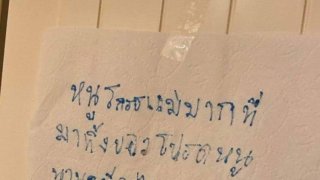 หนูโกรธแม่มากที่
มาทิ้งของโปรดหนู